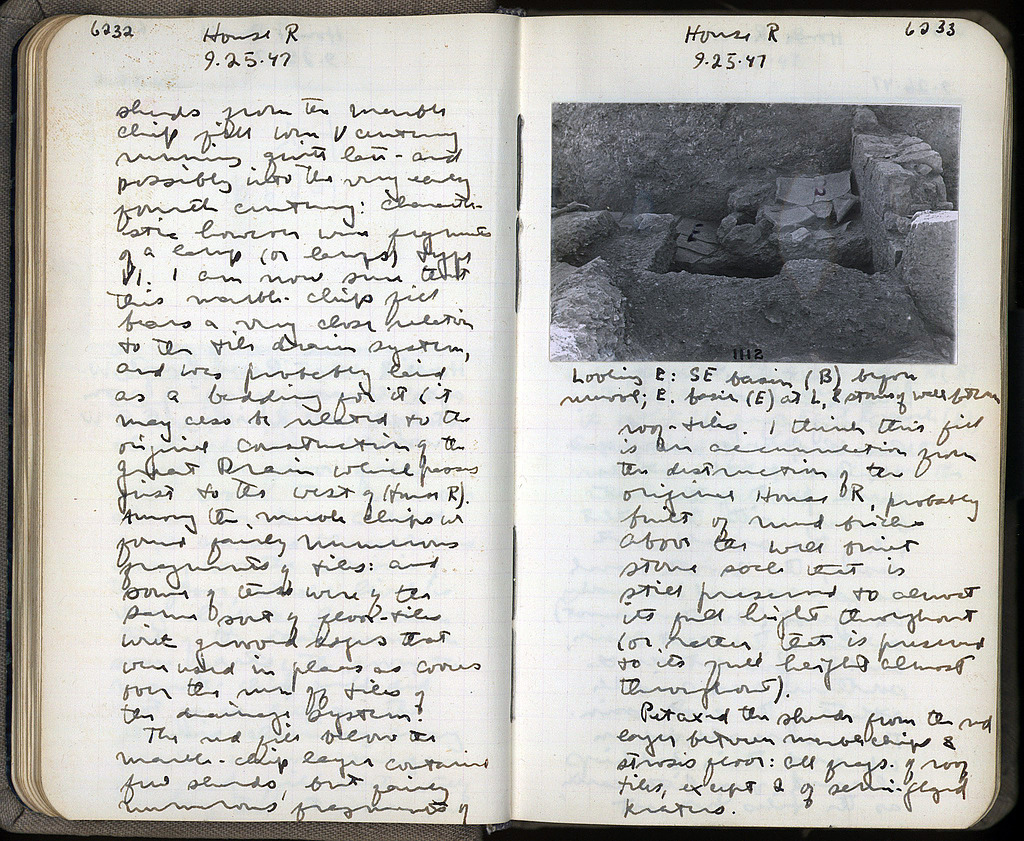 6232
House R
9.25.47
sherds from the marble
chip fill were V century
running quite late - and
possibly into the very early
fourth century: character-
istic however were fragments
of a lamp (or lamps) type
VI. I am now sure that
this marble-chip fill
bears a very close relation
to the tile drain system,
and was probably laid
as a bedding for it (it
may also be related to the
original construction of the
great Drain which passes
just to the west of House R).
Among the marble chips we
found fairly numerous
fragments of tiles: and
some of these were of the
same sort of floor-tiles
with grooved edges that
were used in places as covers
over the run of tiles of
the drainage system.
The red fill below the
marble-chip layer contained
few sherds, but fairly
numerous fragments of
6233
House R
9.25.47
E
2
1112
Looking E: SE basin (B) before
removal; E. basin (E) at L, & stones of wall between
roof-tiles. I think this fill
is an accumulation from
the destruction of the
original House R, probably
built of mud bricks
above the well built
stone socle that is
still preserved to almost
its full height throughout
(or rather that is preserved
to its full height almost
throughout).
Potaxed the sherds from the red
layer between marble chips &
strosis floor: all frags. of roof
tiles, except 2 of semi-glazed
kraters.